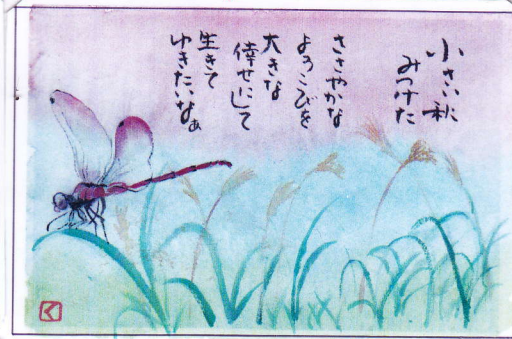 小さい秋
みつけた
ささやかな
よろこびを
大きな
倖せにして
生きて
ゆきたいなぁ
く